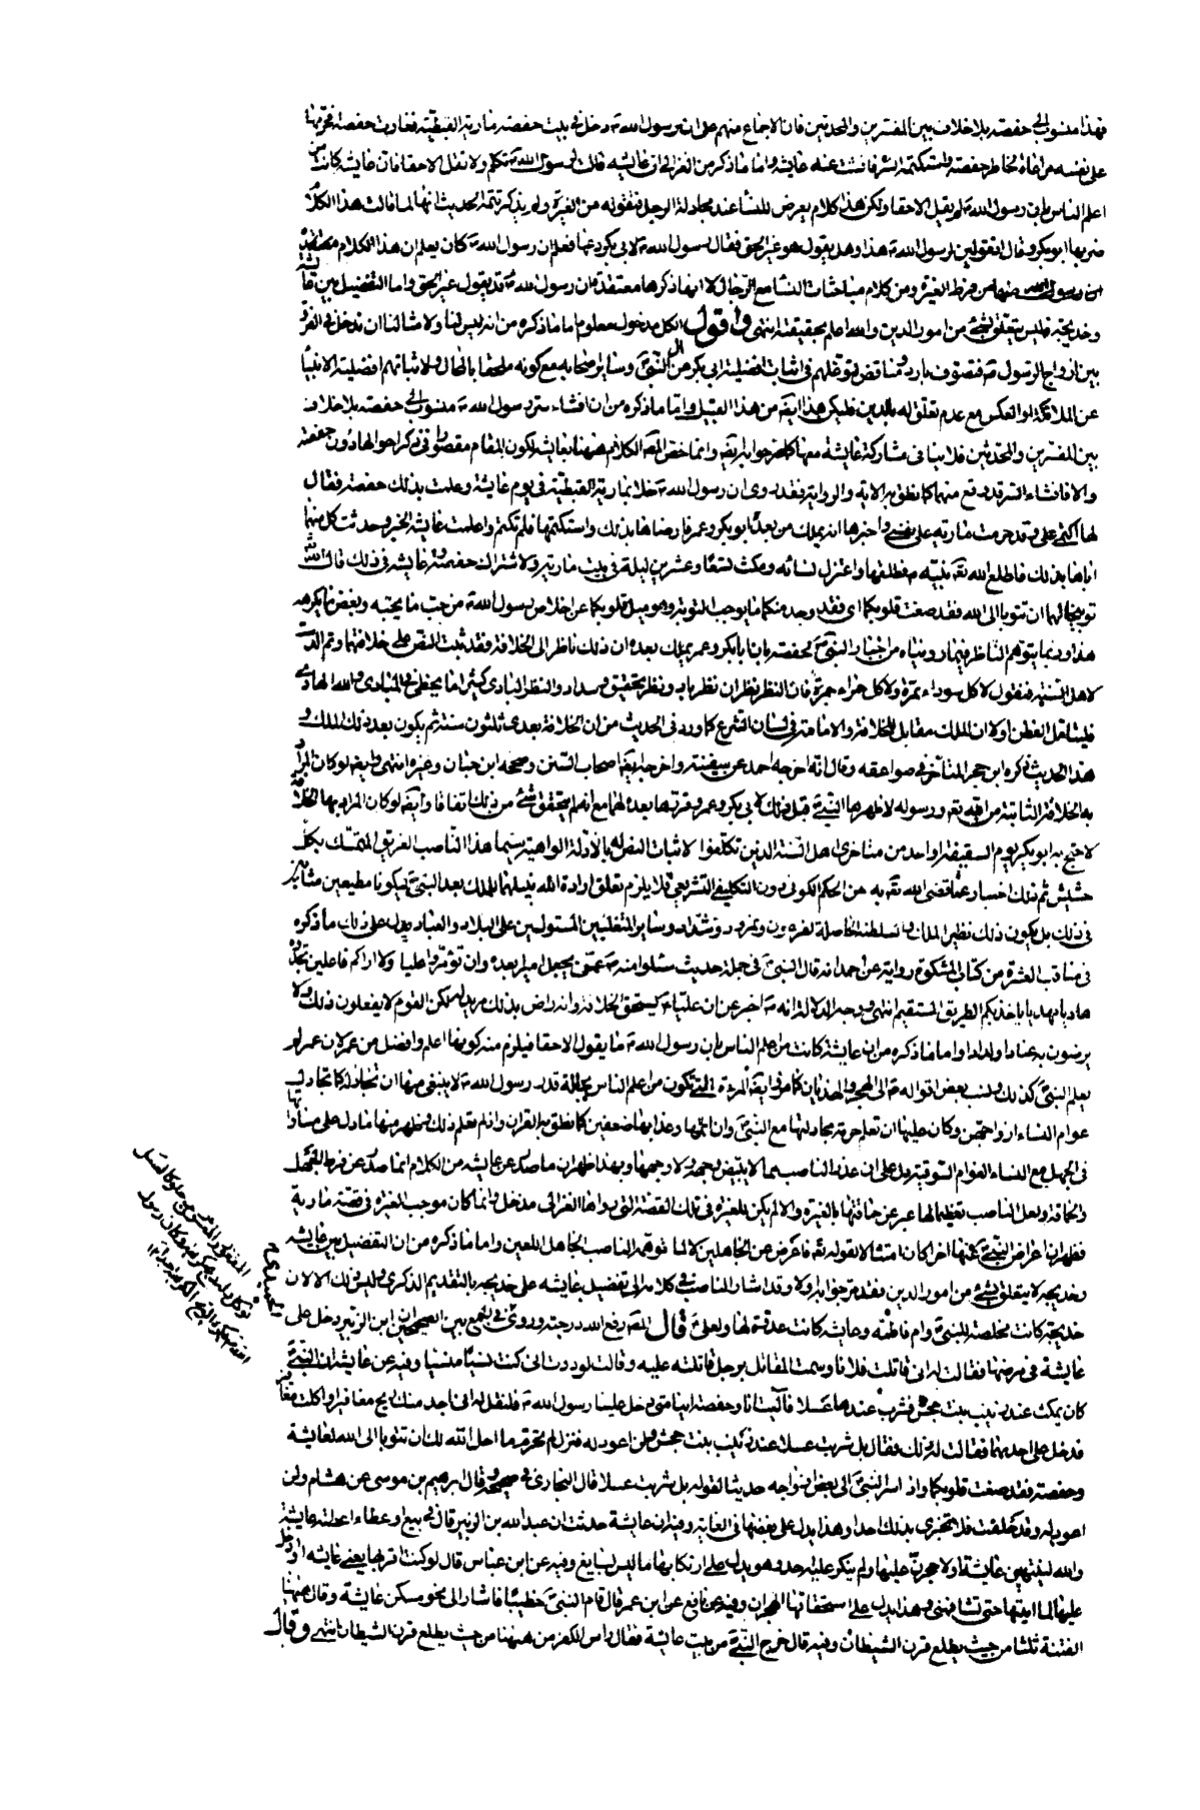 فهذا منسوب الى حفصة بلا خلاف بين المفسرين والمحدثين فان الاجماع منهم على ان رسول الله ص دخل في بيت حفصة مارية القبطية فغارت حفصة فحرمها
على نفسه مراعاة لخاطر حفصة واستكتمه السر فافشت عند عايشة واما ما ذكر من الغزالي ان عايشة قالت لرسول الله ص تكلم ولا تقل الا حقا فان عايشة كانت من
اعلم الناس بان رسول الله ص لم يقل الا حقا ولكن هذا كلام يعرض للنساء عند مجادلة الرجل فتقوله من الغيرة ولم يذكر تتمة الحديث انها لما قالت هذا الكلام
ضربها ابو بكر وقال اتقولين لرسول الله ص هذا وهل يقول هو غير الحق فقال رسول الله ص لابي بكر دعها فعلم ان رسول الله ص كان يعلم ان هذا الكلام
منها من فرط الغيرة ومن كلام مباحثات النساء مع الرجال لا انها ذكرها معتقدة ان رسول الله ص قد يقول غير الحق واما التفضيل بين عايشة
وخديجة فليس يتعلق بشئ من امور الدين والله اعلم بحقيقته انتهى واقول الكل مدخول معلوم اما ما ذكره من انه ليس لنا ولا مثالنا ان ندخل في الفرق
بين ازواج الرسول ص فتصوف بارد وتناقض لتوغلهم في اثبات افضلية ابي بكر من آل النبي ص وساير صحابه مع كونه ملحقا بالمحال ولاثباتهم افضلية الانبياء
عن الملائكة او العكس مع عدم تعلق له بالدين فليكن هذا ايضا من هذا القبيل واما ما ذكره من ان افشاء سر رسول الله ص منسوب الى حفصة بلا خلاف
بين المفسرين والمحدثين فلا ينافي مشاركة عايشة معها كما صرحوا به ايضا وانما خص المص الكلام ههنا بعايشة لكون المقام مقصورا في ذكر احوالها دون حفصة
والا فافشاء السر قد وقع منهما كما نطق به الاية والرواية فقد روى ان رسول الله ص خلا بمارية القبطية في يوم عايشة وعلمت بذلك حفصة فقال
لها اكتمي علي وقد حرمت مارية على نفسي واخبرها انه يملك من بعده ابو بكر وعمر فارضاها بذلك واستكتمها فلم تكتم واعلمت عايشة الخبر وحدثت كل منهما
اباها بذلك فاطلع الله تعالى نبيه ص فطلقها واعتزل نسائه ومكث تسعا وعشرين ليلة في بيت مارية ولاشتراك حفصة وعايشة في ذلك قال الله تعالى
توبيخا لهما ان تتوبا الى الله فقد صغت قلوبكما اي فقد وجد منكما ما يوجب التوبة وهو ميل قلوبكما عن اخلاص رسول الله ص من حب ما يحبه وبغض ما يكرهه
هذا وربما يتوهم الناظر فيما رويناه من اخبار النبي ص لحفصة بان ابا بكر وعمر يملك بعده ان ذلك ناظر الى الخلافة فقد ثبت النص على خلافتهما وتم الدست
لاهل السنة فنقول لا كل سوداء تمرة ولا كل حمراء جمرة فان النظر نظران نظر بادٍ ونظر تحقيق وسداد والنظر البادي كثيرا ما يخطي في المبادي والله الهادي
فليتامل الفطن اولا ان الملك مقابل للخلافة والامامة في لسان الشرع كما ورد في الحديث من ان الخلافة بعدي ثلثون سنة ثم يكون بعد ذلك الملك و
هذا الحديث ذكره ابن حجر المتأخر في صواعقه وقال انه اخرجه احمد عن سفينة واخرجه ايضا اصحاب السنن وصححه ابن حبان وغيره انتهى وايضا لو كان المراد
به الخلافة الثابتة من الله تعالى ورسوله لاظهرها النبي ص قبل ذلك لابي بكر وعمر وغيرهما بعده لهما مع انه لم يتحقق شئ من ذلك اتفاقا وايضا لو كان المراد بها الخلافة
لاحتج به ابو بكر يوم السقيفة او احد من متاخري اهل السنة الذين تكلفوا لاثبات النص له بالادلة الواهية سيما هذا الناصب الغريق المتمسك بكل
حشيش ثم ذلك اخبار عما قضى الله تعالى به من الحكم الكوني دون التكليف التشريعي فلا يلزم تعلق ارادة الله بنيلهما للملك بعد النبي ص ليكونا مطيعين مثابين
في ذلك بل يكون ذلك نظير الملك والسلطنة الحاصلة لفرعون ونمرود وشداد وساير المتغلبين المستولين على البلاد والعباد ويدل على ذلك ما ذكره
في مناقب العشرة من كتاب المشكوة رواية عن احمد انه قال النبي ص في جملة حديث سئلوا منه ص عمن يجعل اميرا بعده وان تؤمروا عليا ولا اراكم فاعلين تجدوه
هاديا مهديا ياخذ بكم الطريق المستقيم انتهى ووجه الدلالة انه ص اخبر عن ان عليا ع يستحق الخلافة وانه راض بذلك مريد له لكن القوم لا يفعلون ذلك ولا
يرضون به عنادا ولدادا واما ما ذكره من ان عايشة كانت من اعلم الناس بان رسول الله ص ما يقول الا حقا فيلزم منه كونها اعلم وافضل من عمر لان عمر لم
يعلم النبي ص كذلك ونسب بعض اقواله ص الى الهجر والهذيان كما مر وايضا المرءة التي تكون من اعلم الناس بجلالة قدر رسول الله ص لا ينبغي منها ان تجادله كما تجادل
عوام النساء ازواجهن وكان عليها ان تعلم حرمة مجادلتها مع النبي ص وان اثمها وعذابها ضعفين كما نطق به القران واذ لم تعلم ذلك وظهر منها ما دل على مساواتها
في الجهل مع النساء العوام السوقية دل على ان عذر الناصب مما لا يبيض وجهه ولا وجهها وبهذا ظهر ان ما صدر عن عايشة من الكلام انما صدر عن فرط الجهل
والحماقة ولعل الناصب تعظيما لها عبر عن حماقتها بالغيرة والا لم يكن للغيرة في تلك القصة التي رواها الغزالي مدخل وانما كان موجب الغيرة في قصة مارية
فظهر ان اعراض النبي ص عنها اخرا كان امتثالا لقوله تعالى فاعرض عن الجاهلين لا لما توهمه الناصب الجاهل اللعين واما ما ذكره من ان التفضيل بين عايشة
وخديجة لا يتعلق بشئ من امور الدين فقد مر جوابه اولا وقد اشار الناصب في كلامه الى تفضيل عايشة على خديجة بالتقديم الذكري وليس ذلك الا لان
خديجة كانت مخلصة للنبي ص وام فاطمة وعايشة كانت عدوة لها ولعلي ع قال المص رفع الله درجته وروى في الجمع بين الصحيحين ان ابن الزبير دخل على
عايشة في مرضها فقالت له اني قاتلت فلانا وسمت المقاتل برجل قاتلته عليه وقالت لوددت اني كنت نسيا منسيا وفيه عن عايشة ان النبي ص
كان يمكث عند زينب بنت جحش فشرب عندها عسلا فآليت انا وحفصة ان ايتنا متى دخل علينا رسول الله ص فلتقل له اني اجد منك ريح مغافير اكلت مغافير
فدخل على احديهما فقالت له ذلك فقال بل شربت عسلا عند زينب بنت جحش ولن اعود له فنزل لم تحرم ما احل الله لك ان تتوبا الى الله لعايشة
وحفصة فقد صغت قلوبكما واذ اسر النبي الى بعض ازواجه حديثا لقوله بل شربت عسلا قال البخاري في صحيحه وقال ابرهيم بن موسى عن هشام ولن
اعود له وقد حلفت فلا تخبري بذلك احدا وهذا يدل على نقضها في الغاية وفيه ان عايشة حدثت ان عبدالله بن الزبير قال في بيع او عطاء اعطته عايشة
والله لتنتهين عايشة او لاحجرن عليها ولم ينكر عليه احد وهو يدل على ارتكابها ما ليس بسايغ وفيه عن ابن عباس قال لو كنت اقربها يعني عايشة او ادخل
عليها لما اتيتها حتى تشافهني وهذا يدل على استحقاقها الهجران وفيه عن نافع عن ابن عمر قال قام النبي ص خطيبا فاشار الى نحو مسكن عايشة وقال ههنا
الفتنة ثلثا من حيث يطلع قرن الشيطان وفيه قال خرج النبي ص من بيت عايشة فقال راس الكفر من ههنا من حيث يطلع قرن الشيطان انتهى وقال